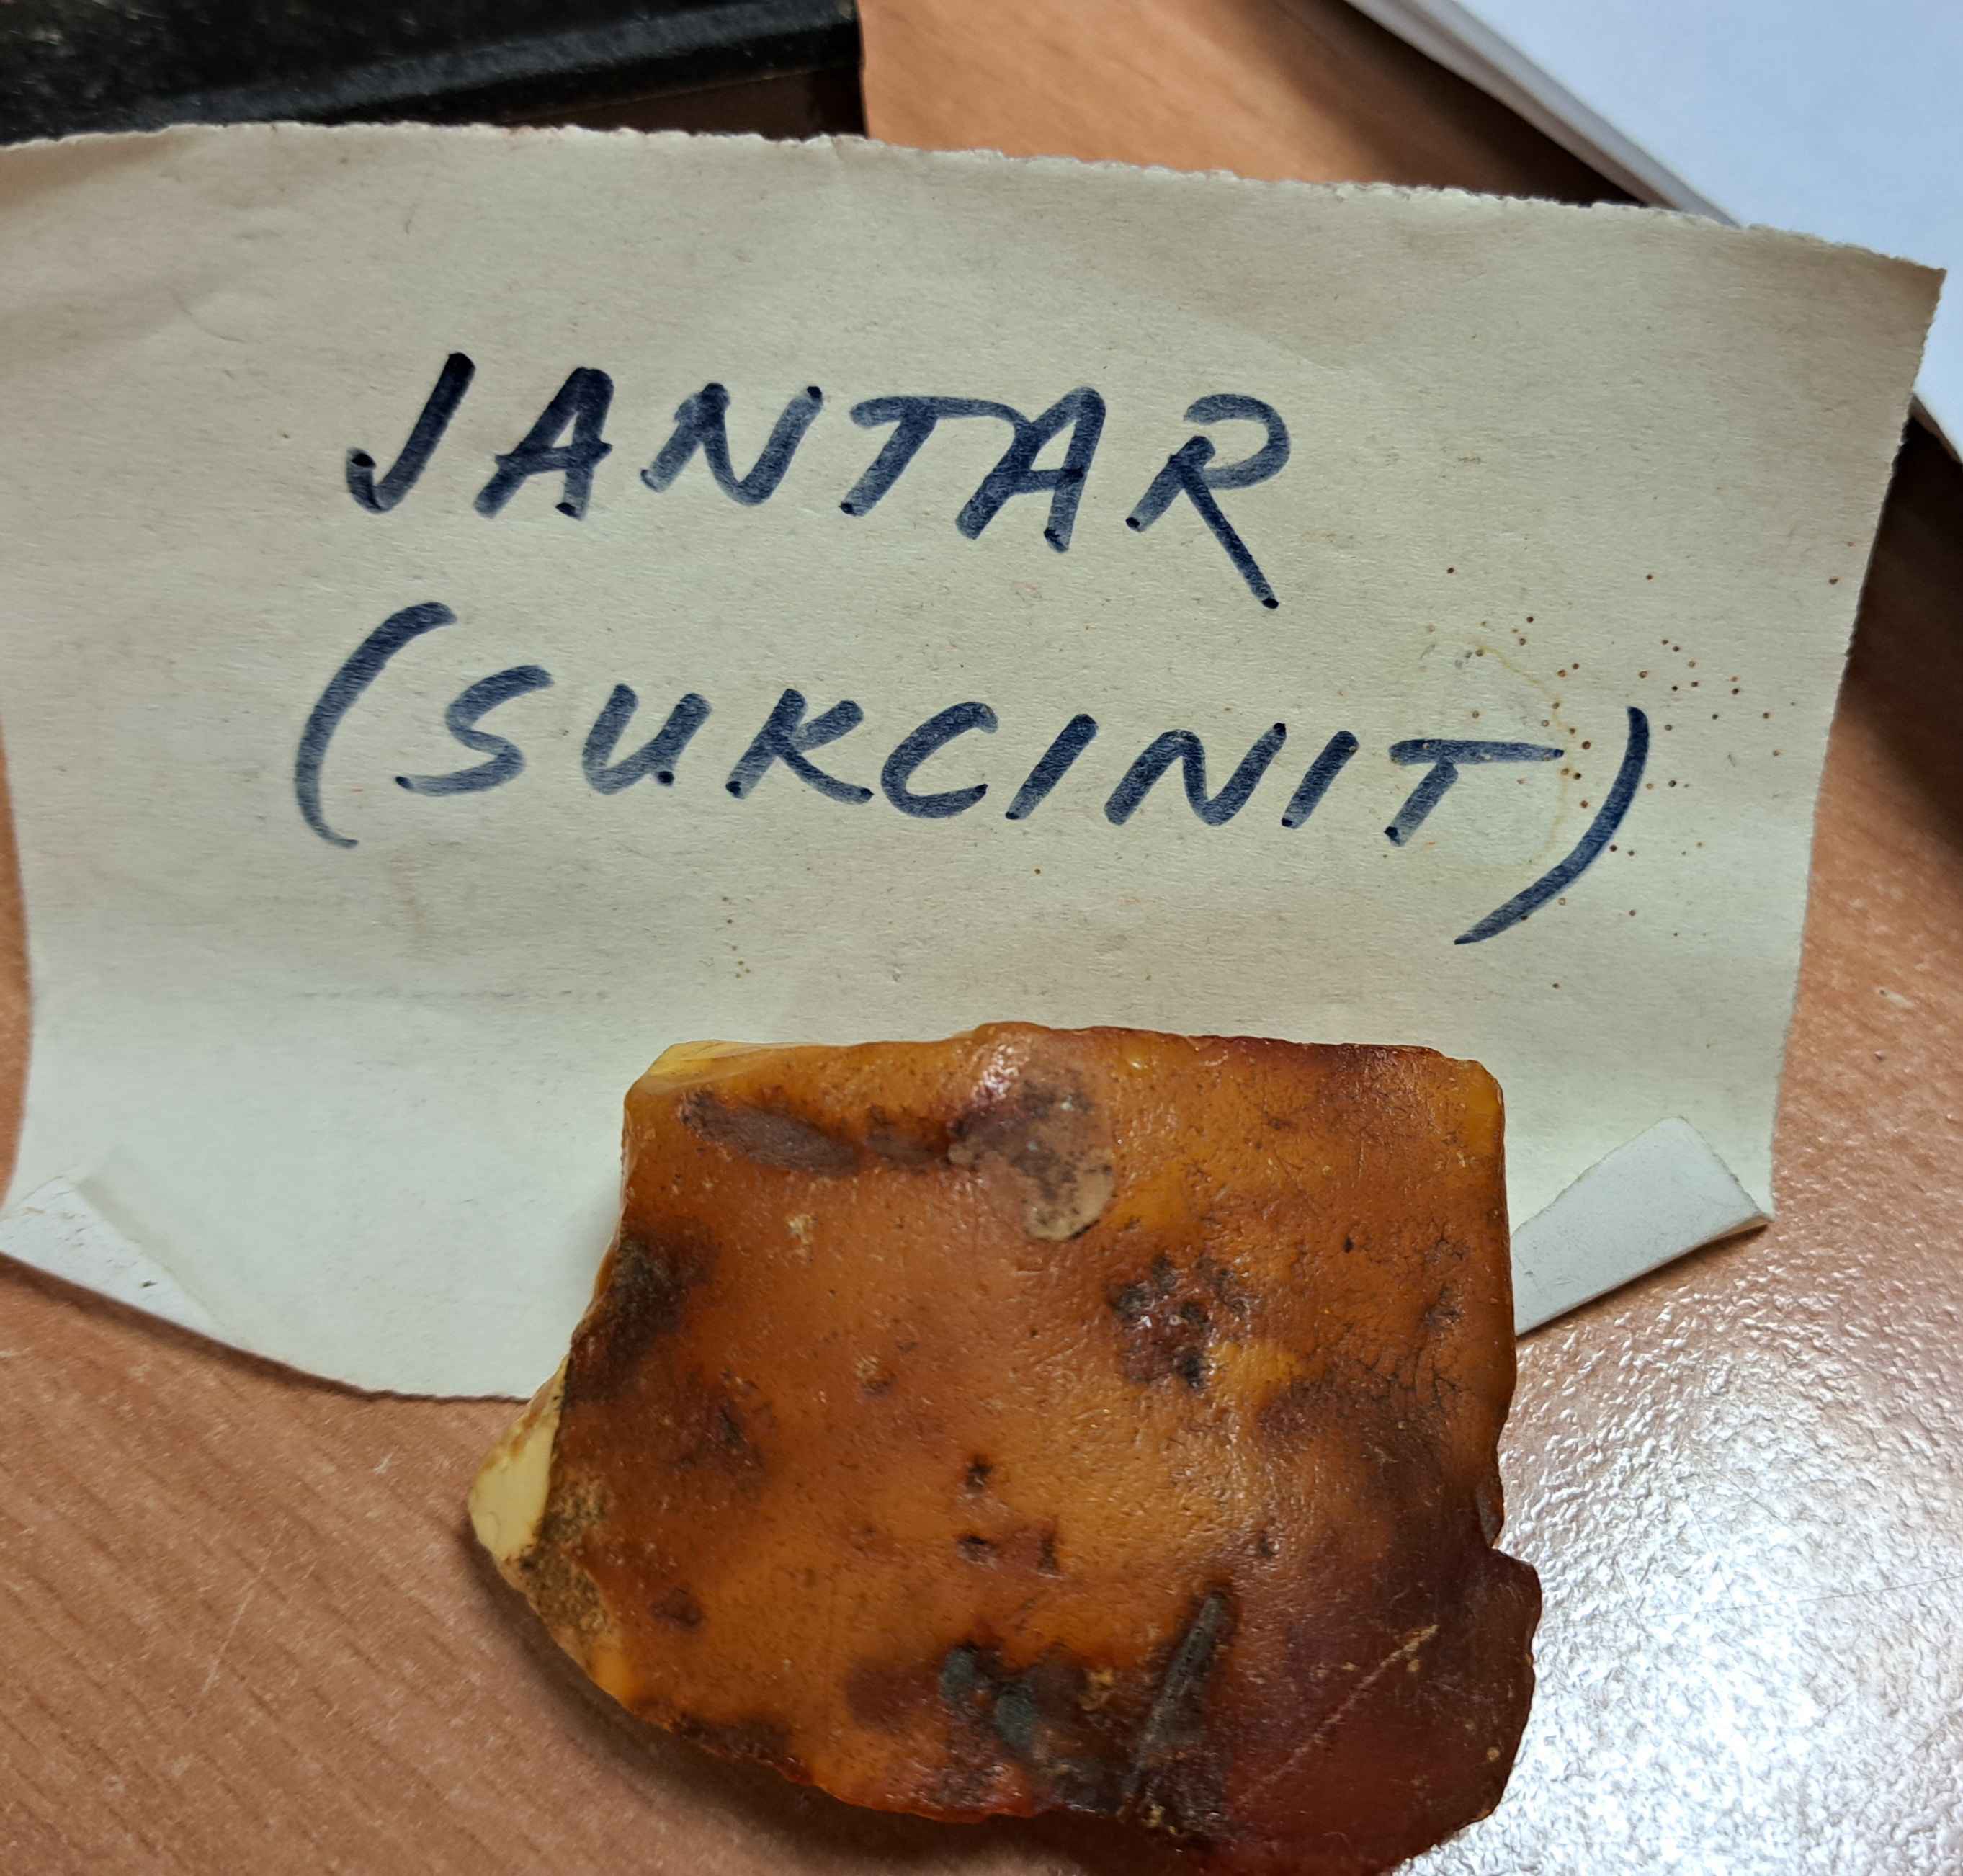 JANTAR
(SUKCINIT)